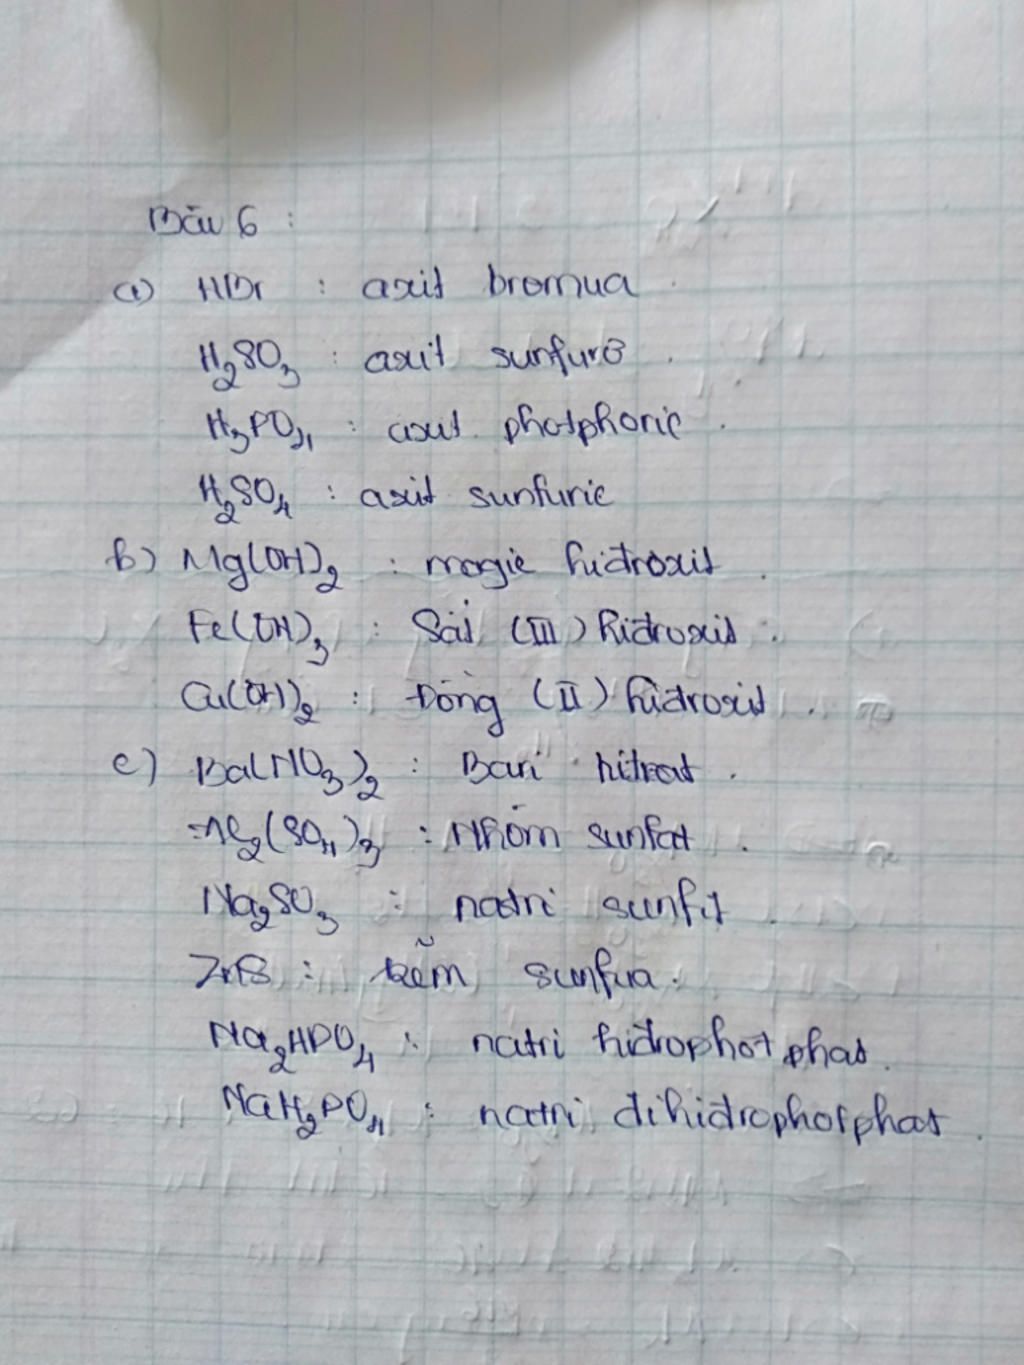 Bài 6 :
a) HBr : axit bromua .
H₂SO₃ : axit sunfurơ .
H₃PO₄ : axit photphoric .
H₂SO₄ : axit sunfuric
b) Mg(OH)₂ : magie hiđroxit .
Fe(OH)₃ : Sắt (III) hiđroxit .
Cu(OH)₂ : Đồng (II) hiđroxit .
c) Ba(NO₃)₂ : Bari nitrat .
Al₂(SO₄)₃ : Nhôm sunfat .
Na₂SO₃ : natri sunfit .
ZnS : kẽm sunfua .
Na₂HPO₄ : natri hiđrophotphat .
NaH₂PO₄ : natri đihiđrophotphat .